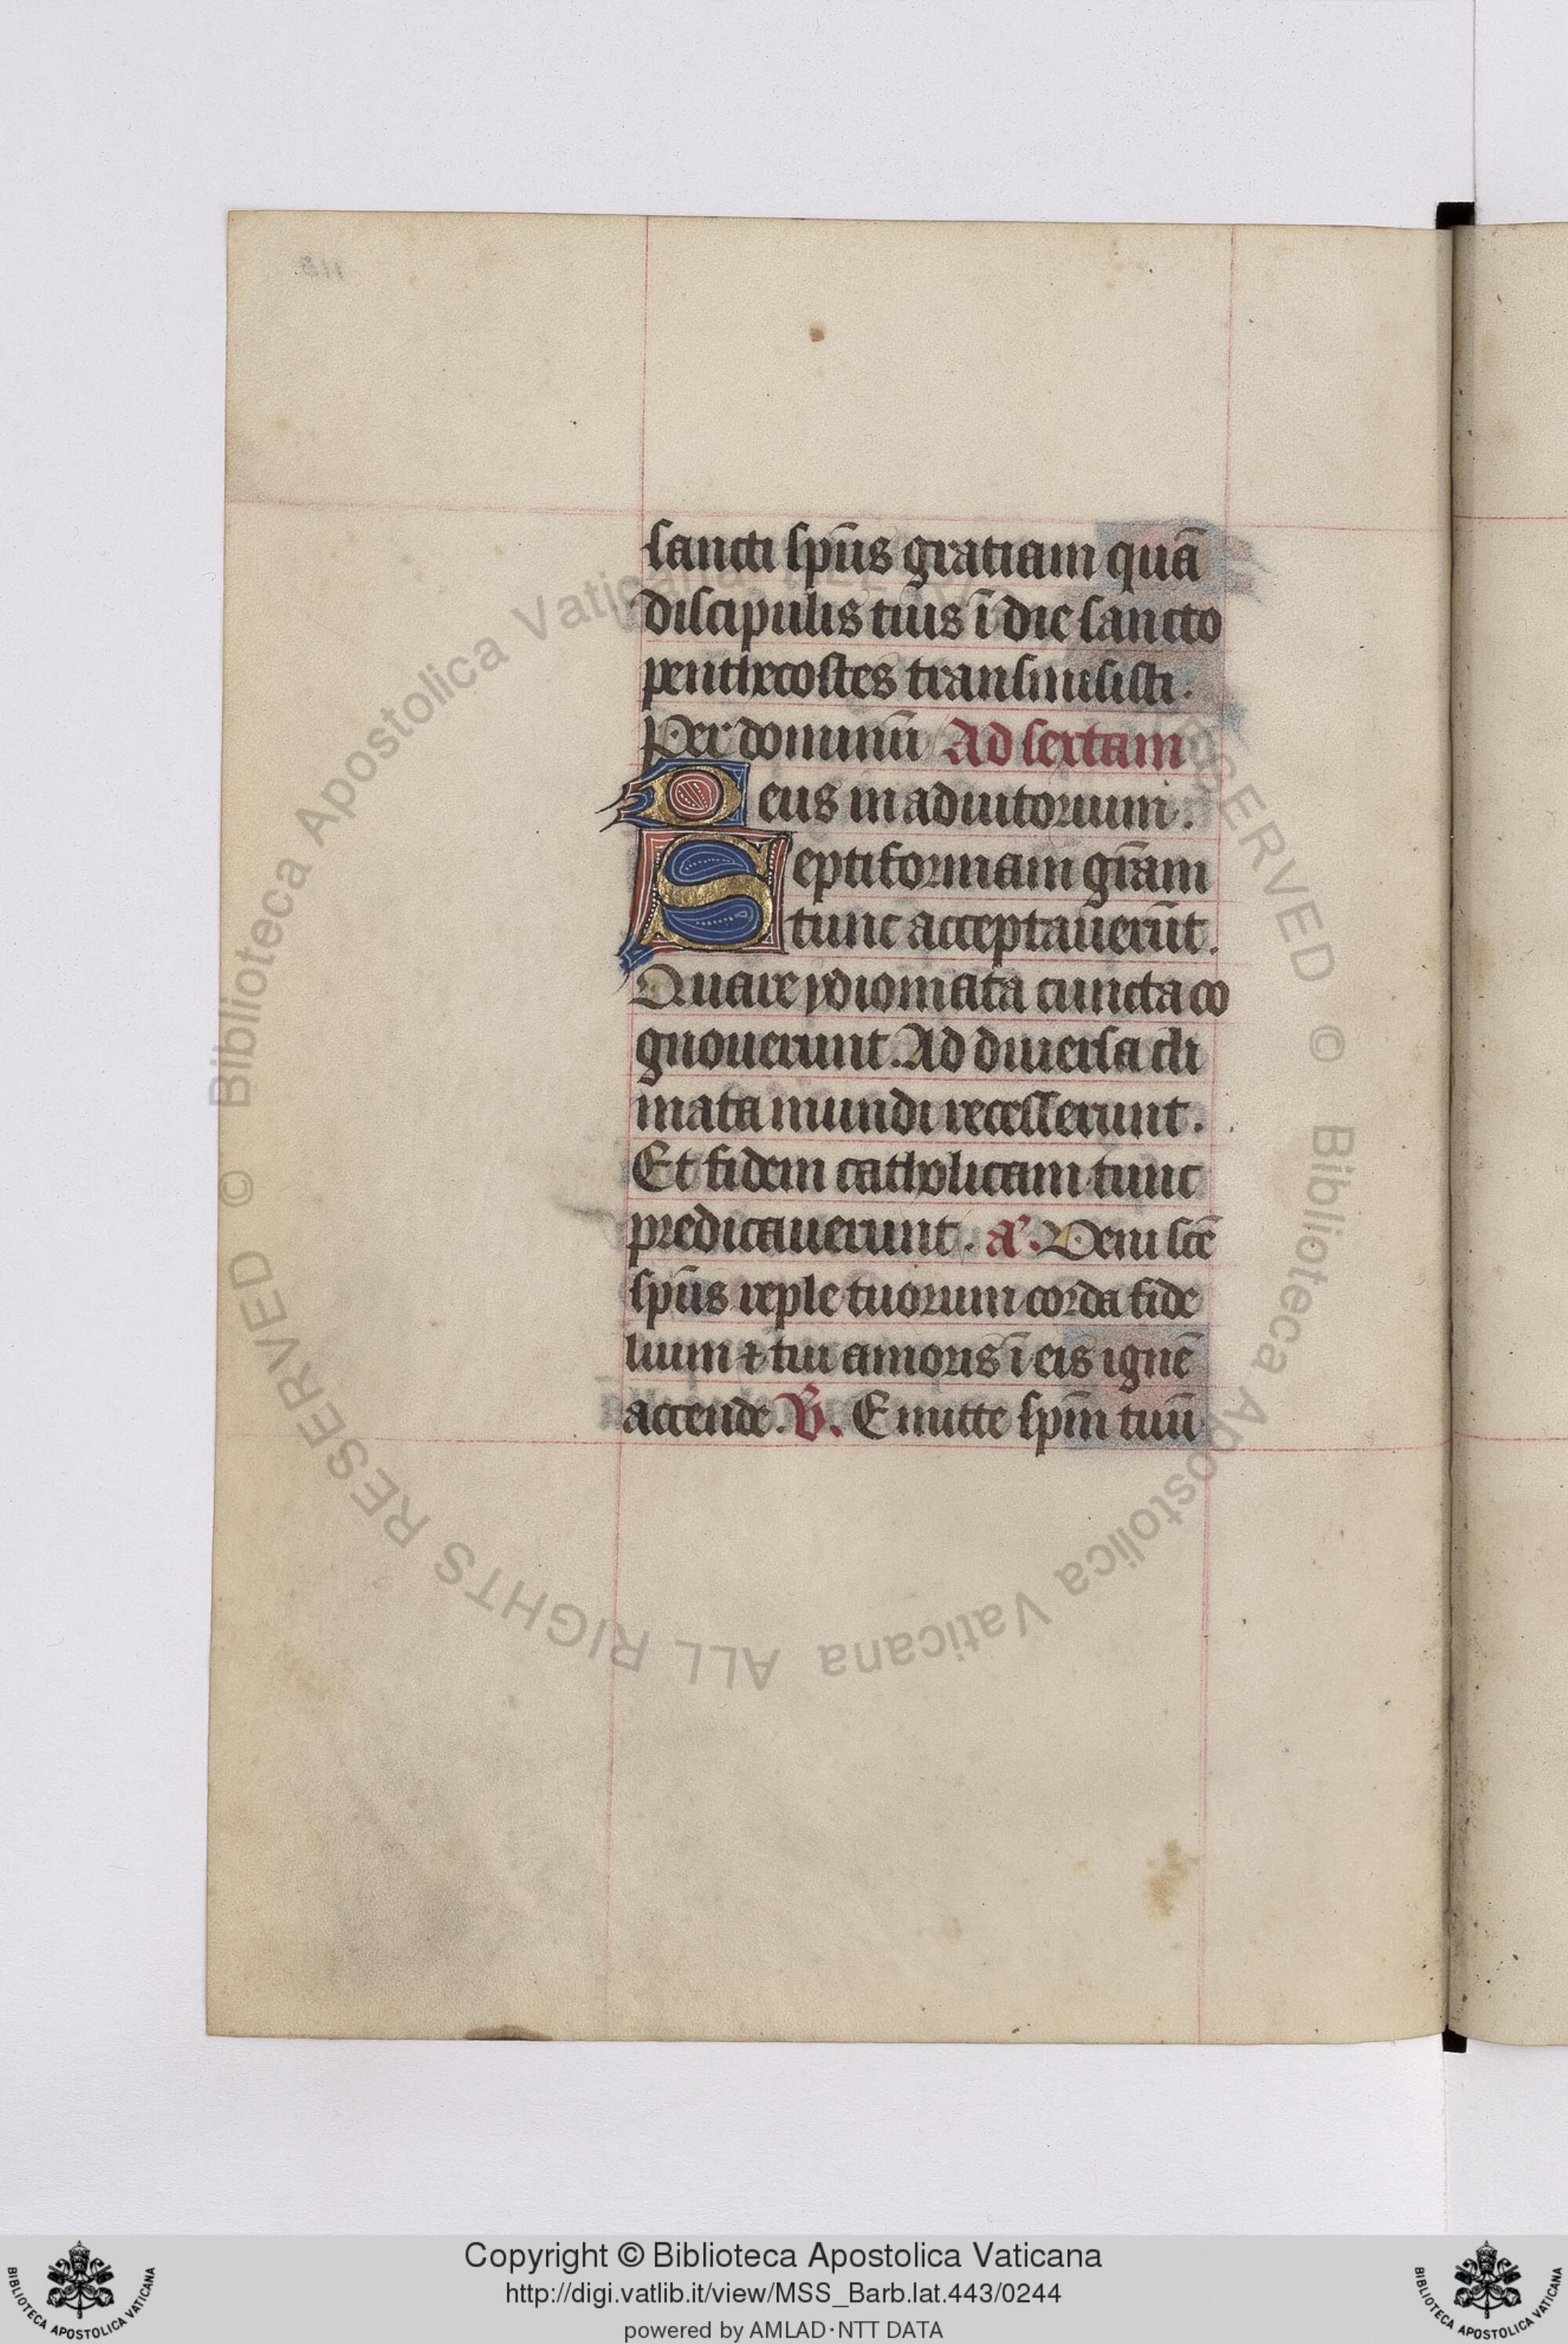 sancti spūs gratiam quā
discipulis tuis ī die sancto
penthecostes transmisisti.
Per dominū Ad sextam
Deus in adiutorium.
Septiformam grām
tunc acceptauerūt.
Quare ydiomata cuncta co
gnouerunt. Ad diuersa cli
mata mundi recesserunt.
Et fidem catholicam tunc
predicauerunt. a'. Veni scē
spūs reple tuorum corda fide
lium ⁊ tui amoris ī eis ignē
accende. V̄. Emitte spm̄ tuū
© Biblioteca Apostolica Vaticana ALL RIGHTS RESERVED © Biblioteca Apostolica Vaticana ALL RIGHTS RESERVED
Copyright © Biblioteca Apostolica Vaticana
http://digi.vatlib.it/view/MSS_Barb.lat.443/0244
powered by AMLAD·NTT DATA
BIBLIOTECA APOSTOLICA VATICANA
BIBLIOTECA APOSTOLICA VATICANA